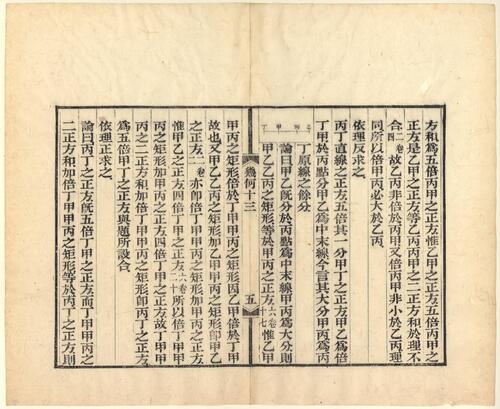 方和爲五倍丙甲之正方惟乙甲之正方五倍丙甲之
正方是乙甲之正方等乙丙丙甲之二正方和於理不
合二卷四故乙丙非倍於丙甲又倍丙甲非小於乙丙理
同所以倍甲丙必大於乙丙
依理反求之
丙丁直線之正方五倍其一分甲丁之正方甲乙爲倍
丁甲於丙點分甲乙爲中末線今言其大分甲丙爲丙
丁原線之餘分
論曰甲乙旣分於丙點爲中末線甲丙爲大分則
甲乙乙丙之矩形等於甲丙之正方六卷十七惟乙甲
幾何十三
五
甲丙之矩形倍於丁甲甲丙之矩形因乙甲倍於丁甲
故也又甲乙乙丙之矩形加乙甲甲丙之矩形卽甲乙
之正方二卷二亦卽倍丁甲甲丙之矩形加甲丙之正方
惟甲乙之正方四倍甲丁之正方六卷二十所以倍丁甲甲
丙之矩形加甲丙之正方四倍丁甲之正方故丁甲甲
丙之二正方和加倍丁甲甲丙之矩形卽丙丁之正方
爲五倍甲丁之正方與題所設合
依理正求之
論曰丙丁之正方旣五倍丁甲之正方而丁甲甲丙之
二正方和加倍丁甲甲丙之矩形等於丙丁之正方則